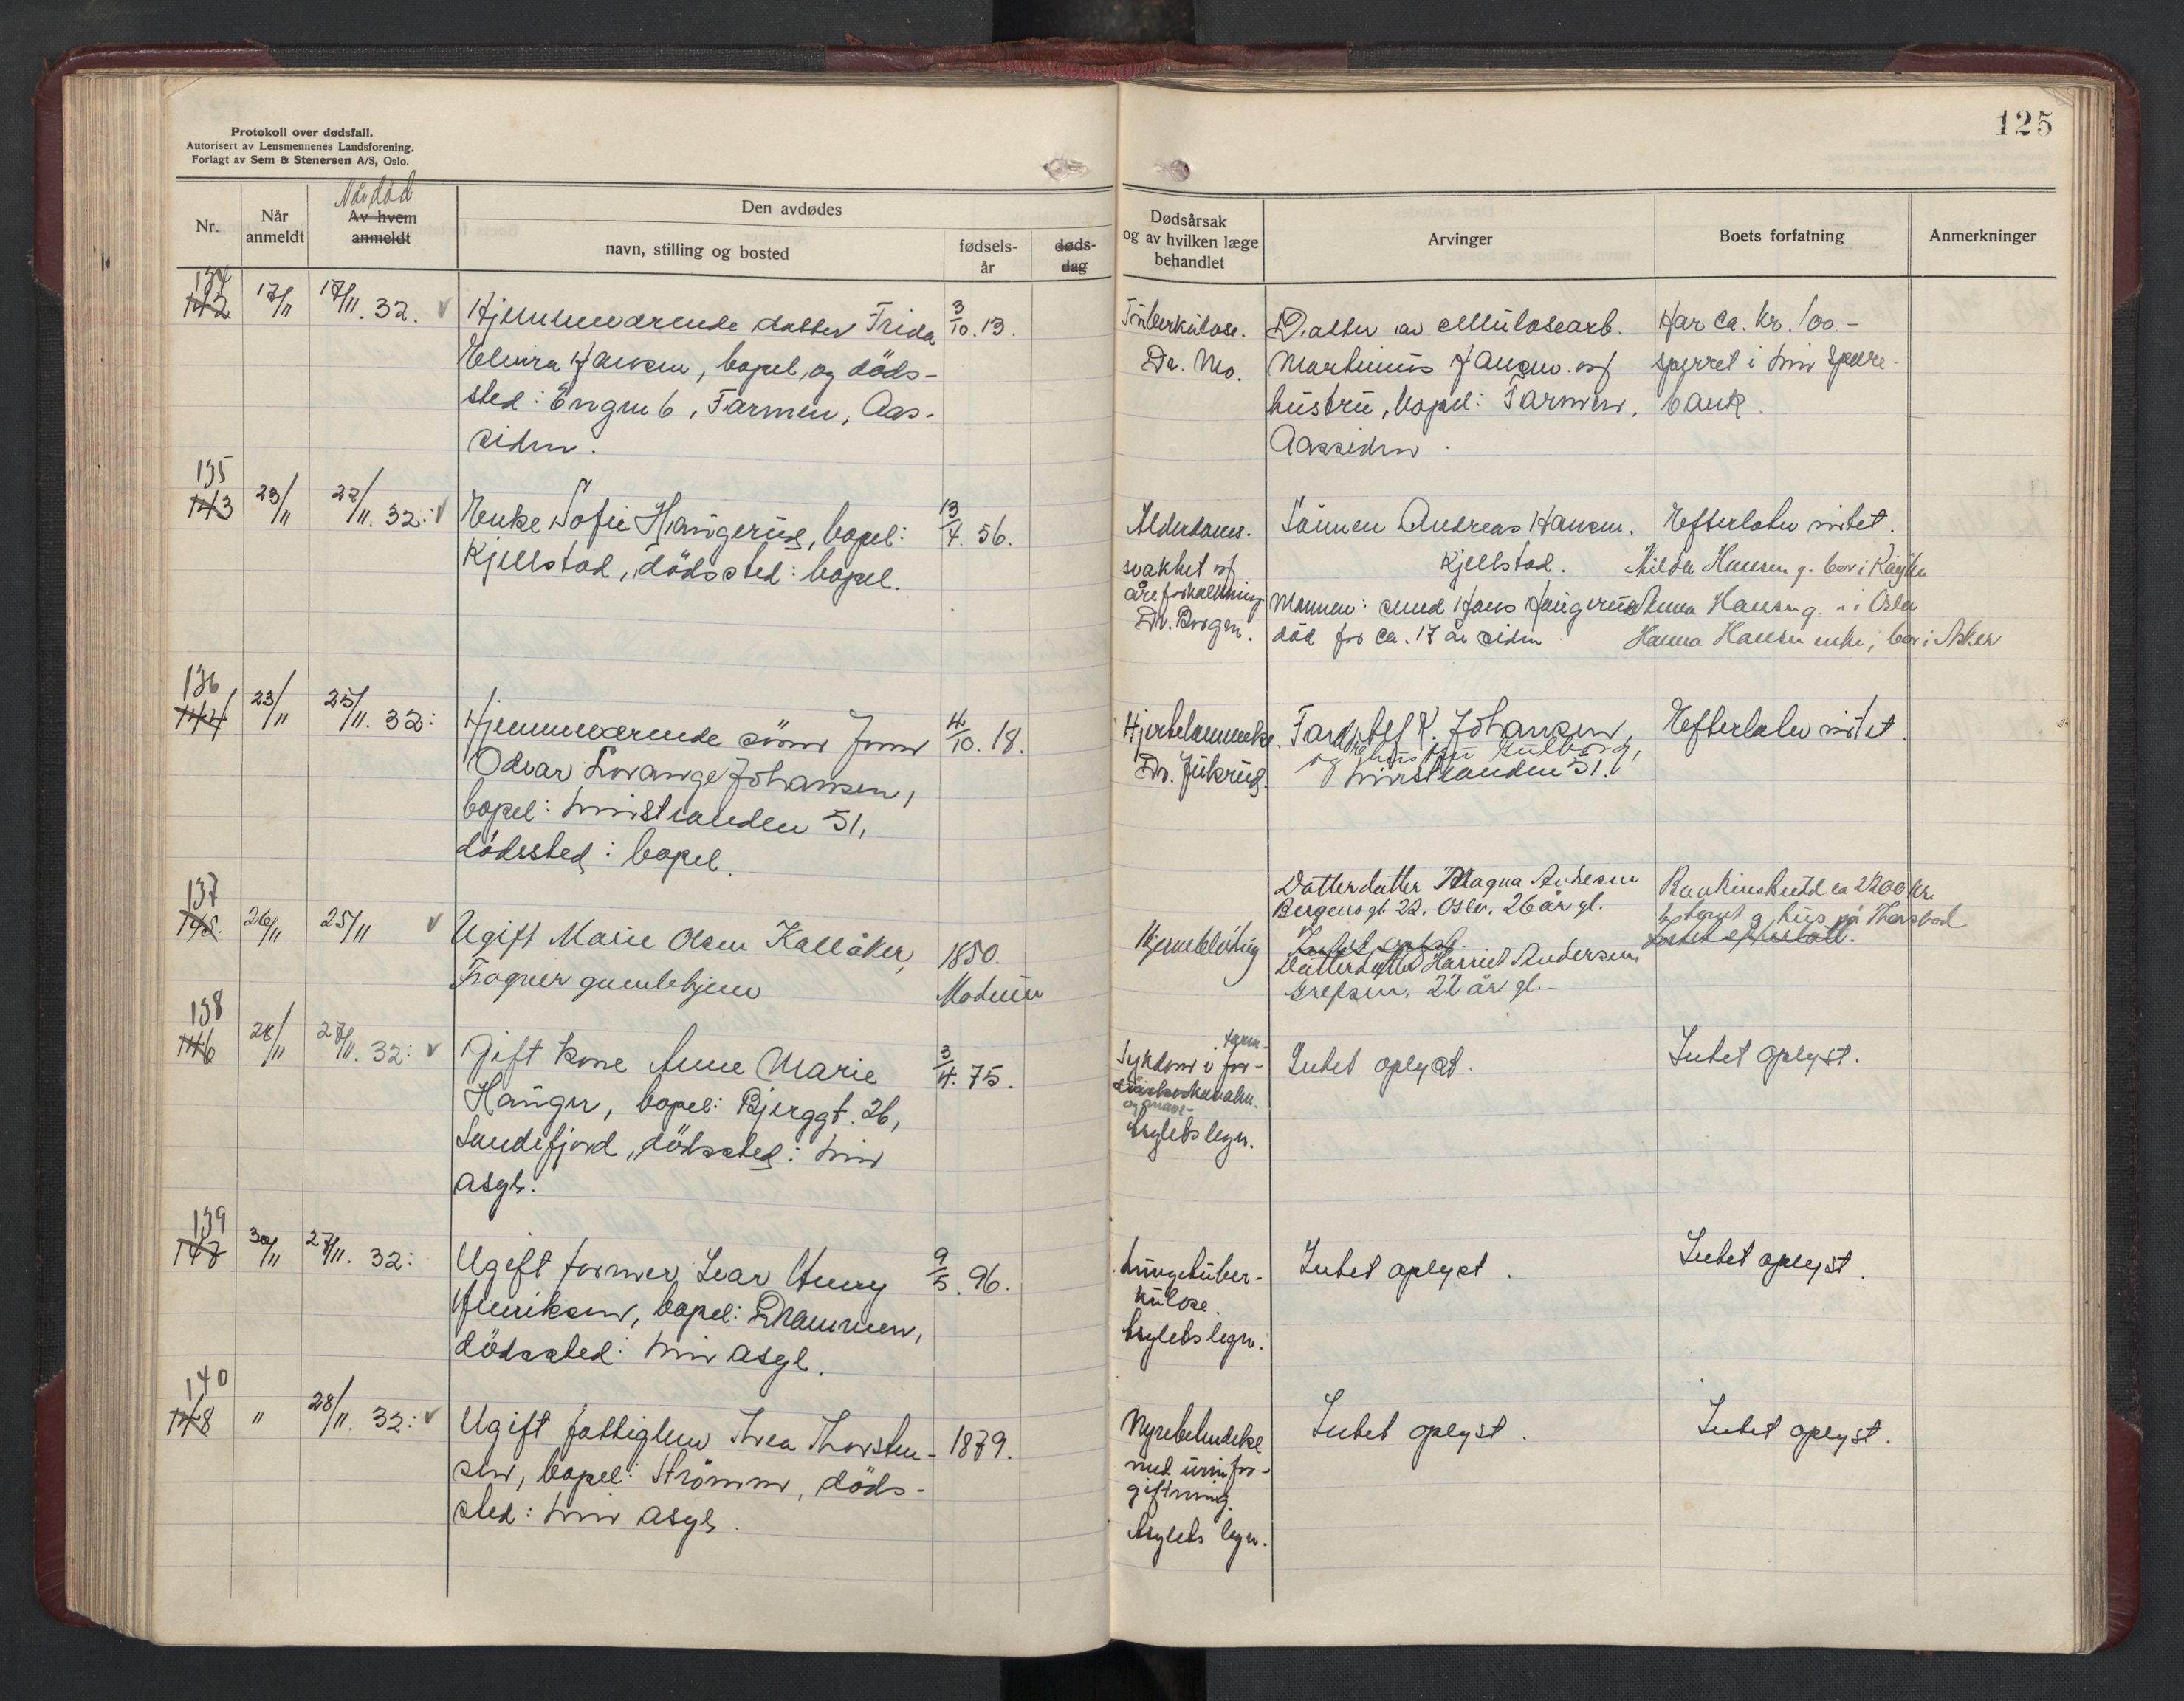 Protokoll over dødsfall.
Autorisert av Lensmennenes Landsforening.
Forlagt av Sem & Stenersen A/S, Oslo.
125
Nr.
Når anmeldt
Når död
Av hvem anmeldt
Den avdødes
navn, stilling og bosted
fødsels-
år
døds-
dag
Dødsårsak
og av hvilken læge
behandlet
Arvinger
Boets forfatning
Anmerkninger
134
142 17/11 17/11. 32. Hjemmeværende datter Frida 3/10. 13.
Elvira Hansen, bopel og döds-
sted: Engene 6, Tarmen, Aas-
siden.
Tuberkulose.
Dr. Mo.
Datter av cellulosearb.
Martinius Hansen og
hustru, bopel: Tarmen,
Aassiden.
Har ca. kr. 100.-
sperret i Lier Spare-
bank.
135
143 23/11 22/11. 32: Enke Sofie Haugerud, bopel: 13/4. 56.
Kjellstad, dödssted: bopel.
Alderdoms-
svakhet og
åreforkalkning
Dr. Borgen.
Sönnen Andreas Hansen.
Kjellstad.
Mannen: smed Hans Haugerud
död for ca. 17 år siden
Efterlater intet.
Hilda Hansen g. bor i Röyken
Anna Hansen g. " i Oslo
Hanna Hansen enke, bor i Asker
136
144 23/11 25/11. 32: Hjemmeværende sönn 4/10. 18.
Odvar Lorange Johansen,
bopel: Lierstranden 51,
dödssted: bopel.
Hjertelammelse.
Dr. Jukrud.
Far: Alf K. Johansen,
og hustru
Lierstranden 51.
Efterlater intet.
137
145. 26/11 25/11 Ugift Marie Olsen Kallåker, 1850.
Frogner gamlehjem Modum
Hjerneblödning
Datterdatter Magna Andresen
Bergensgt. 22. Oslo. 26 år gl.
Intet oplyst.
Datterdatter Harriet Andersen,
Grefsen. 22 år gl.-
Bankinnskudd ca 2200 kr.
hus på
138
146 28/11 27/11. 32: Gift kone Anne Marie 3/4. 75.
Hauger, bopel: Bjerggt. 26,
Sandefjord, dödssted: Lier
asyl.
tarm-
Sykdom i for-
og mave-
Asylets legn.
Intet oplyst.
Intet oplyst.
139
147 30/11 27/11. 32: Ugift former Ivar Henry 9/5. 96.
Henriksen, bopel: Drammen,
dödssted: Lier asyl.
Lungetuber-
kulose.
Asylets legn.
Intet oplyst.
Intet oplyst.
140
148 " 28/11. 32: Ugift fattiglem Thea Thorsten- 1879.
sen, bopel: Strömm, döds-
sted: Lier asyl.
Nyrebetendelse
med urinfor-
giftning.
Asylets legn.
Intet oplyst.
Intet oplyst.